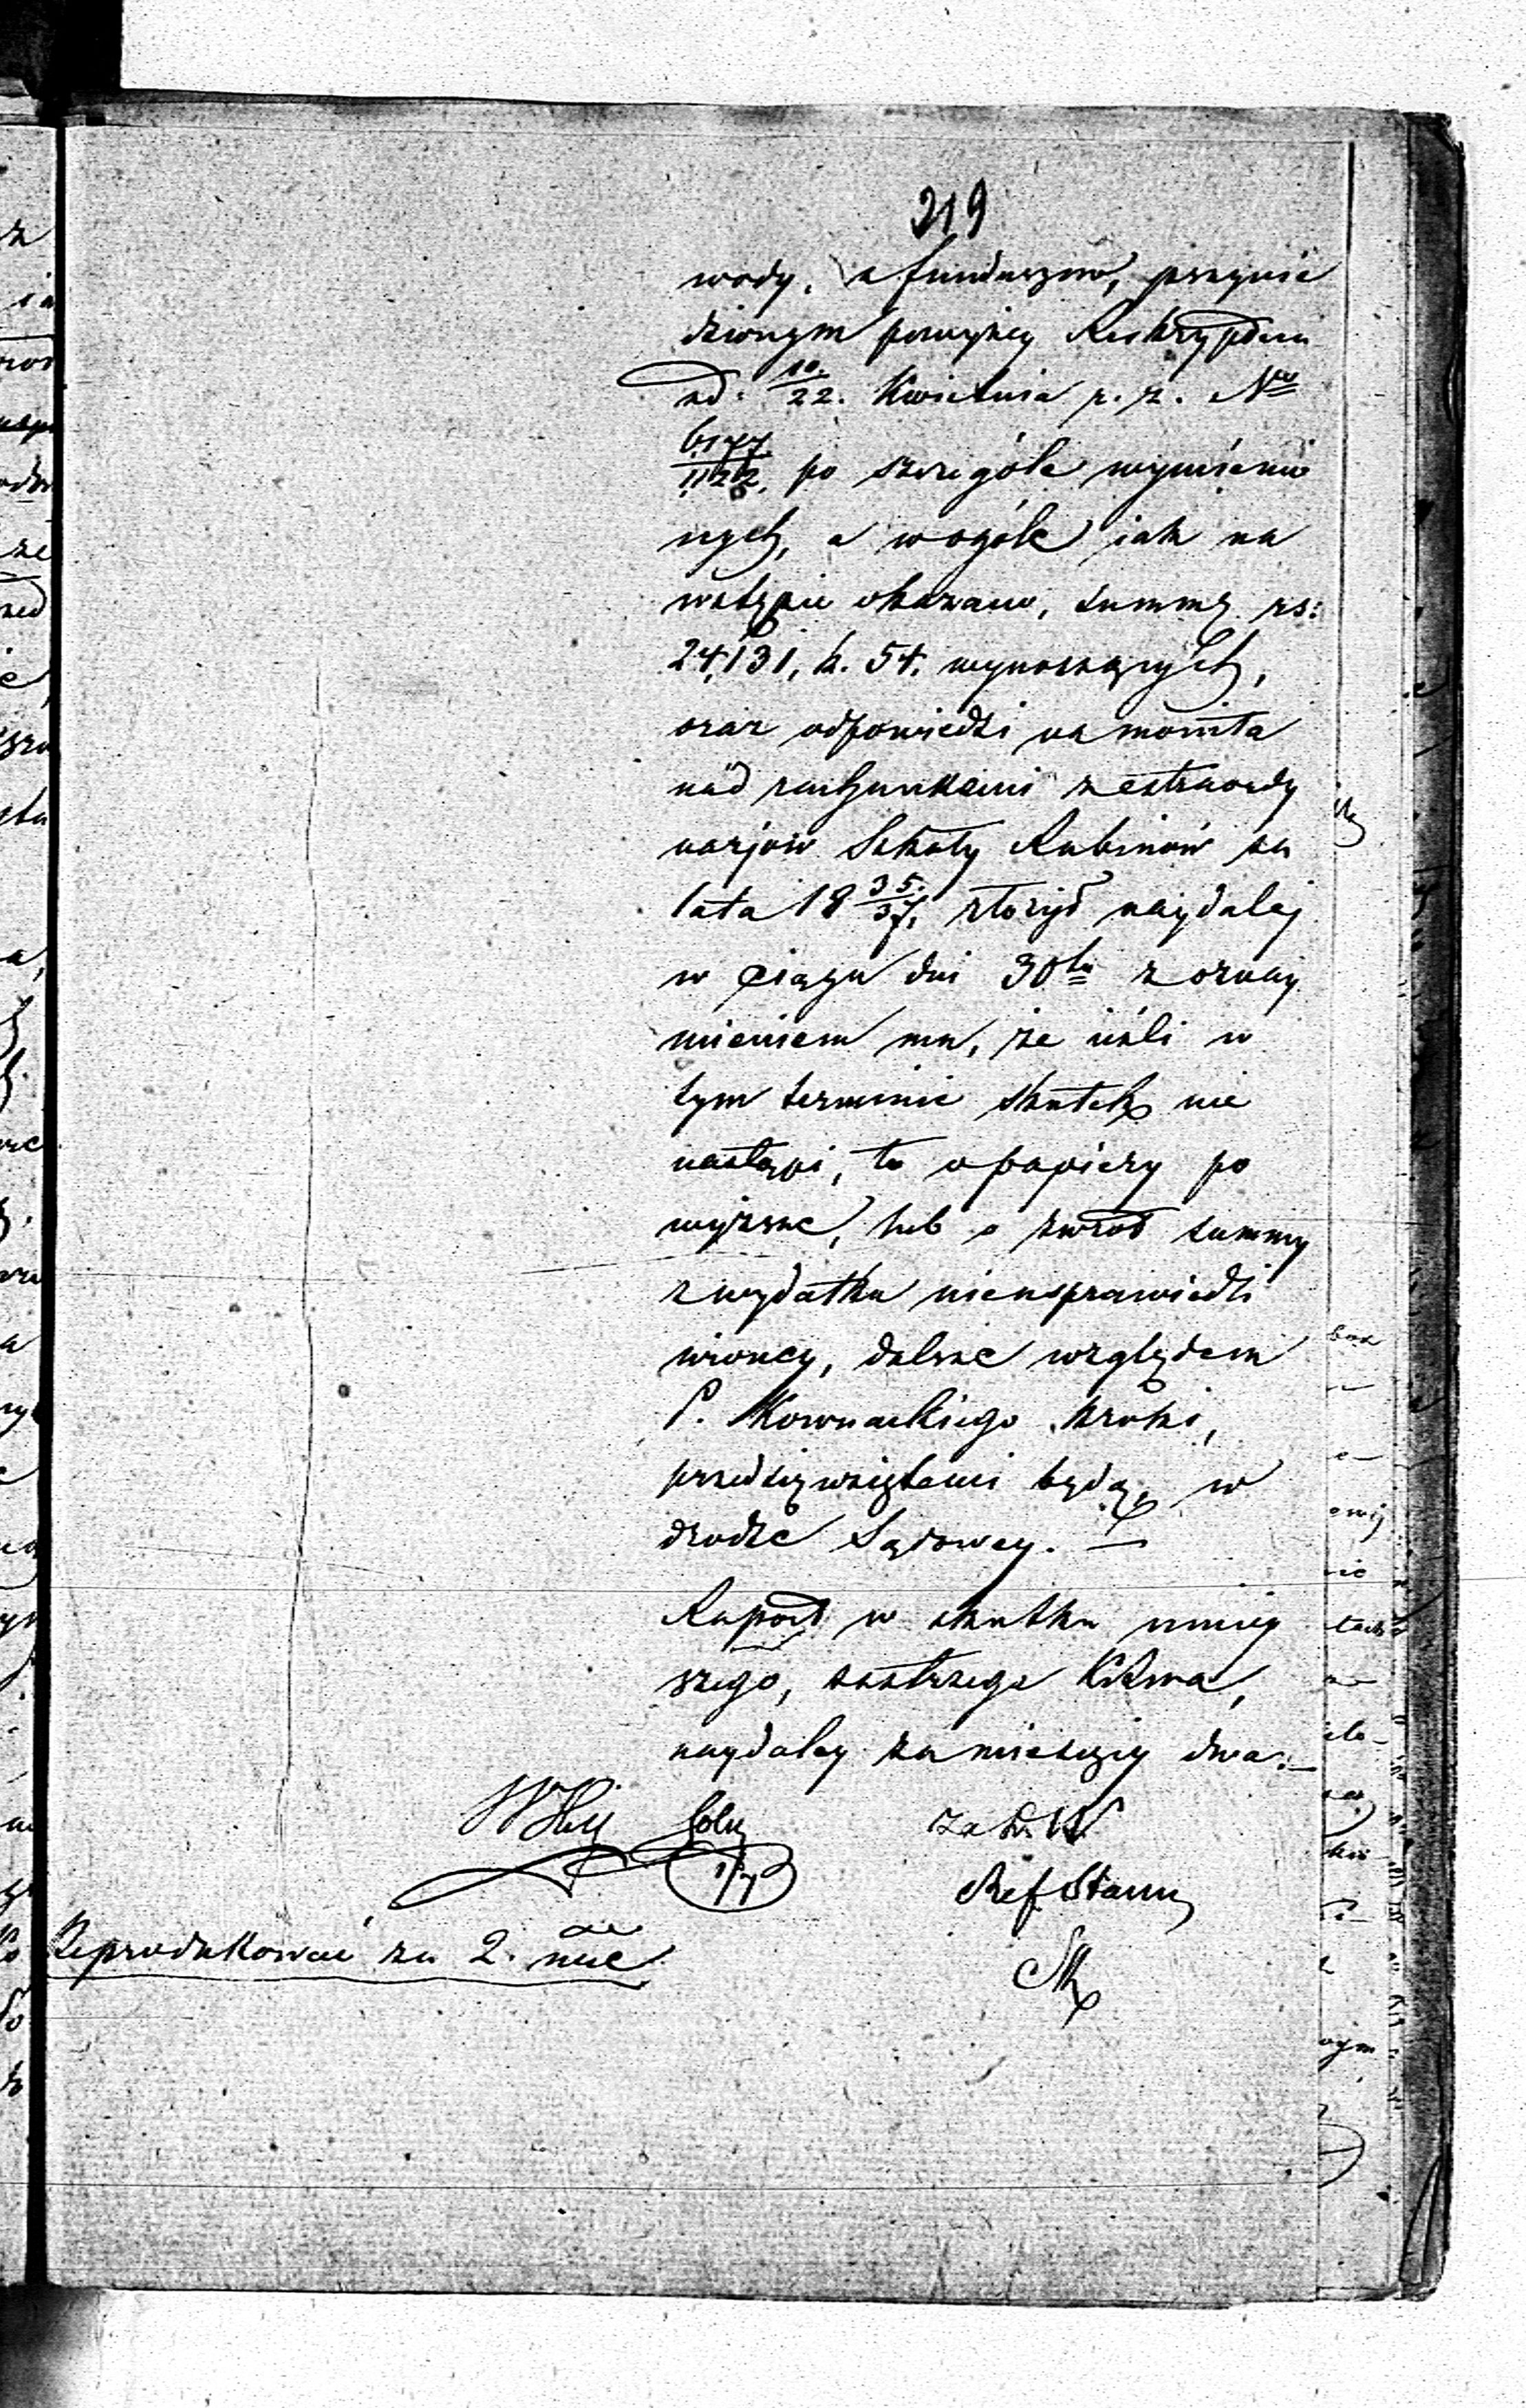 219
wody, z funduszów, przywie
dzionym powyżey Reskryptem
od 10/22 Kwietnia r. z. Nro
6177/11222, po szczególe wymienio
nych, a wogóle iak na
wstępie okazano, summę rs:
24,131, k. 54. wynoszących,
oraz odpowiedzi na monita
nad rachunkami z extraordy
narjów Szkoły Rabinów za
lata 18 35/37, złożył naydaley
w ciągu dni 30tu z oznay
mieniem mu, że ieśli w
tym terminie skutek nie
nastąpi, to o papiery po
wyższe, lub o zwrot summy
z wydatku nieusprawiedli
wioney, dalsze względem
P. Kownackiego kroki,
przedsięwziętemi będą, w
drodze Sądowey. —
Raport w skutku niniey
szego, zastrzega KRwa,
naydaley za miesięcy dwa. —
Ref. Stanu
Reprodukować za 2. mce